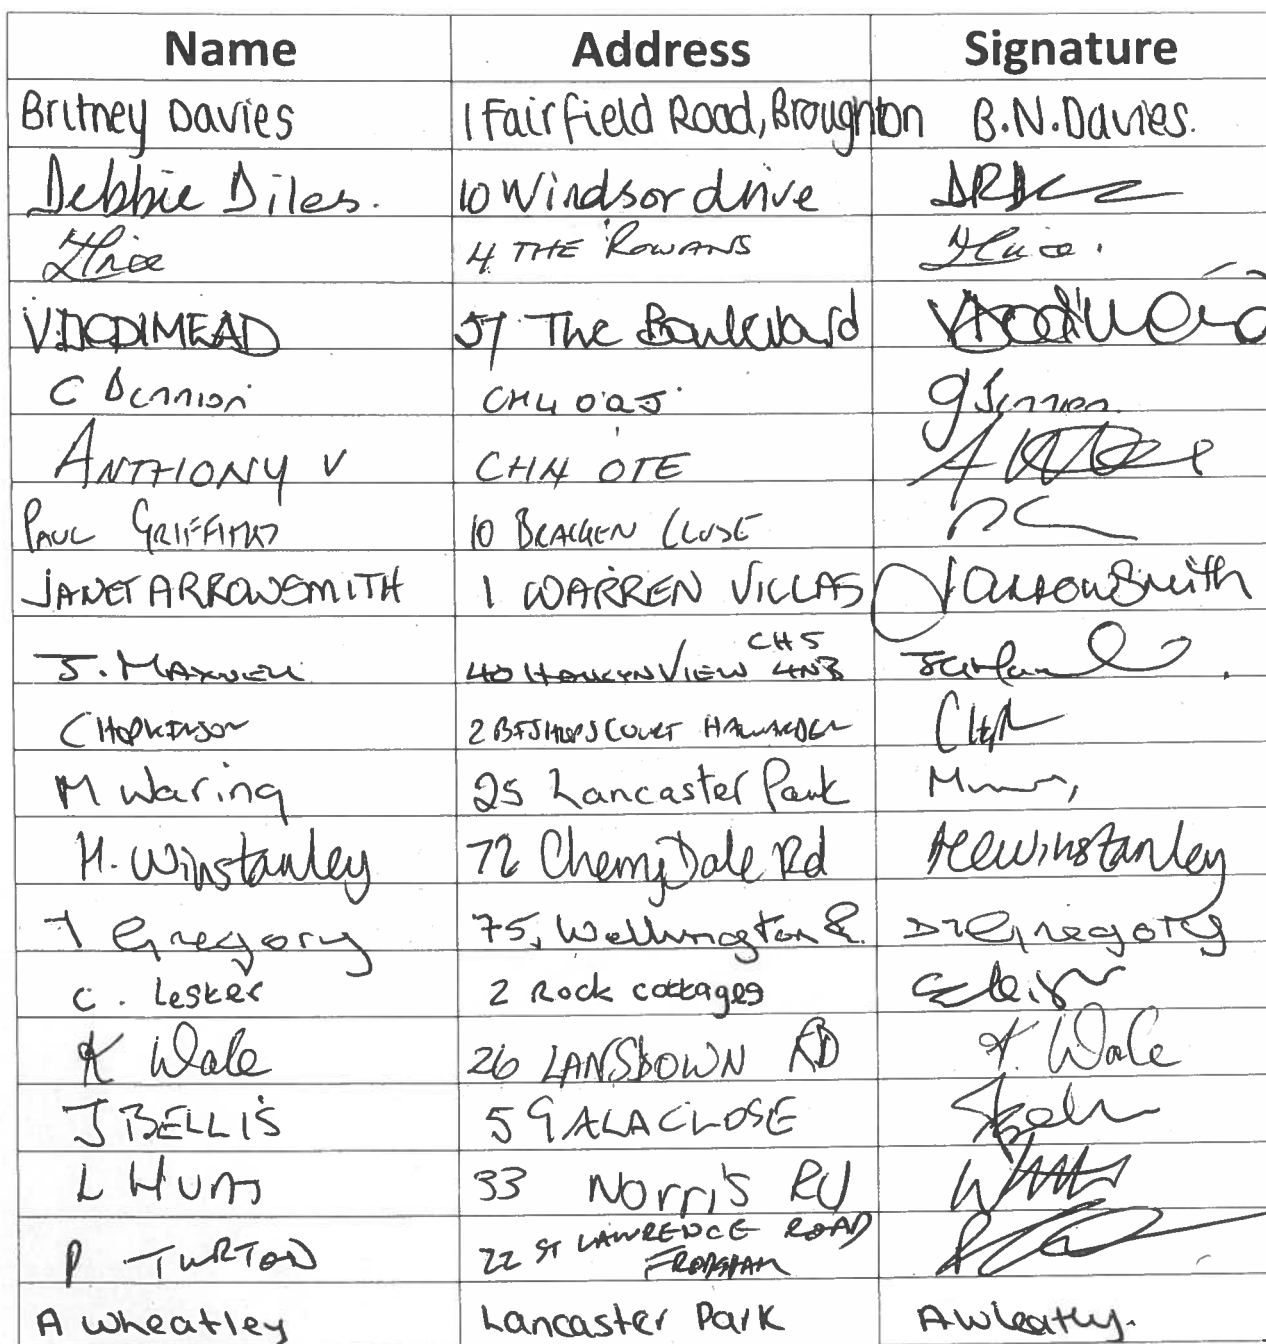 Name Address Signature
Britney Davies 1 Fairfield Road, Broughton B.N.Davies.
Debbie Diles. 10 Windsor drive
4 THE ROWANS
V.DODIMEAD 57 The Boulevard V Dodimead
C Dennion CH4 0QJ
ANTHONY V CH4 0TE
PAUL GRIFFITHS 10 BRACKEN CLOSE
JANET ARROWSMITH 1 WARREN VILLAS J Arrowsmith
CH5
J. MAXWELL 40 HALKYN VIEW 4NB
C HOPKINSON 2 BISHOPS COURT HAWARDEN
M Waring 25 Lancaster Park
H. Winstanley 72 Cherry Dale Rd Winstanley
T Gregory 75, Wellington Gregory
C. Lesker 2 Rock cottages
K Wale 26 LANSDOWN RD K. Wale
J BELLIS 5 GALA CLOSE
L Hunt 33 Norris Rd
P TURTON 22 ST LAWRENCE ROAD
FRODSHAM
A Wheatley Lancaster Park A Wheatley.